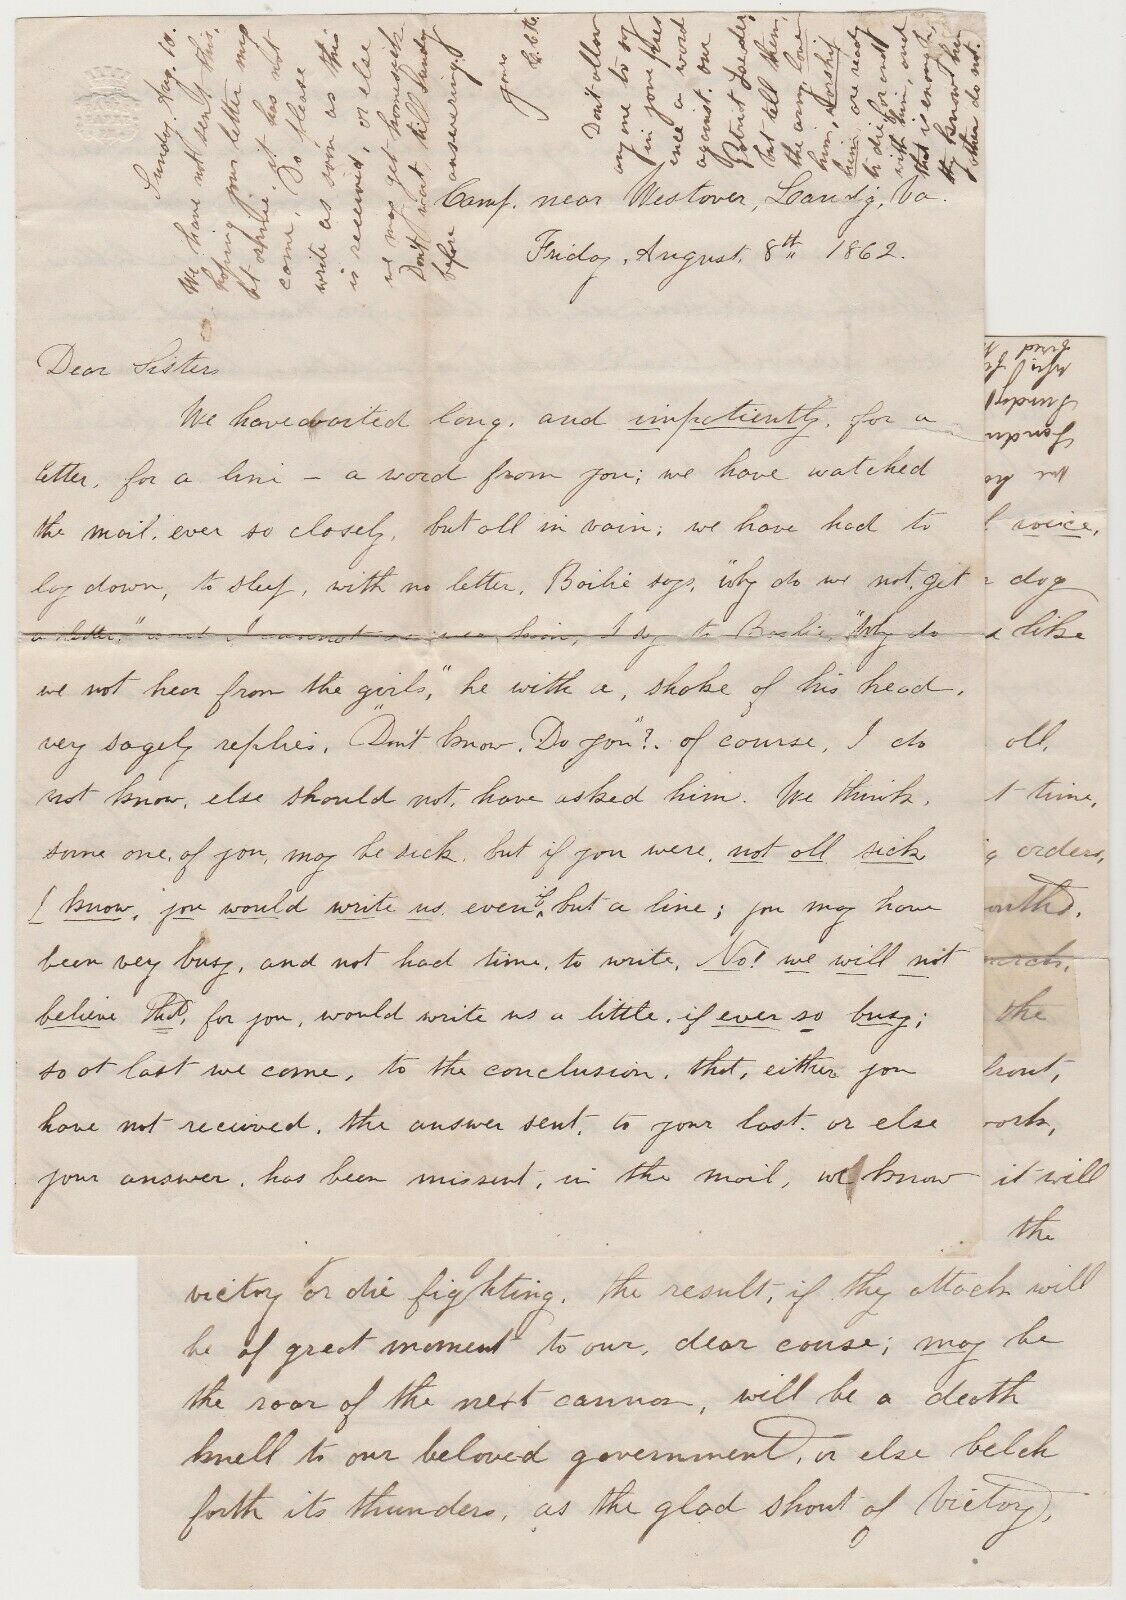 Sunday. Aug. 10.
We have not sent this,
hoping your letter may
but it has not
come. So please
write as soon as this
is received, or else
we may get homesick
Don't wait till Sunday
before answering.
Yours
Don't allow
any one to say
in your pres
ence a word
against our
Patriot Leader,
but tell them,
the army love
him, worship
him, are ready
to die for and
with him, and
that is enough,
they know him
others do not.
Camp. near Westover, Land'g, Va.
Friday, August, 8th 1862.
Dear Sisters
We have waited long, and impatiently, for a
letter, for a line – a word from you; we have watched
the mail, ever so closely, but all in vain; we have had to
lay down, to sleep, with no letter, Bailie says, "why do we not get
a letter," and I cannot answer him, I say to Bailie, "Why do
we not hear from the girls," he with a, shake of his head,
very sagely replies, "Don't know. Do you"? of course, I do
not know, else should not, have asked him. We think,
some one, of you, may be sick, but if you were, not all sick
I know, you would write us even if, but a line; you may have
been very busy, and not had time, to write, No! we will not
believe that, for you, would write us a little, if ever so busy;
so at last we come, to the conclusion, that, either you
have not received, the answer sent, to your last. or else
your answer, has been missent, in the mail, we know
voice,
dog
like
all,
time,
orders,
the
front,
work,
it will
the
victory or die fighting. the result, if they attack will
be of great moment to our, dear cause; may be
the roar of the next cannon, will be a death
knell to our beloved government, or else belch
forth its thunders, as the glad shout of Victory,